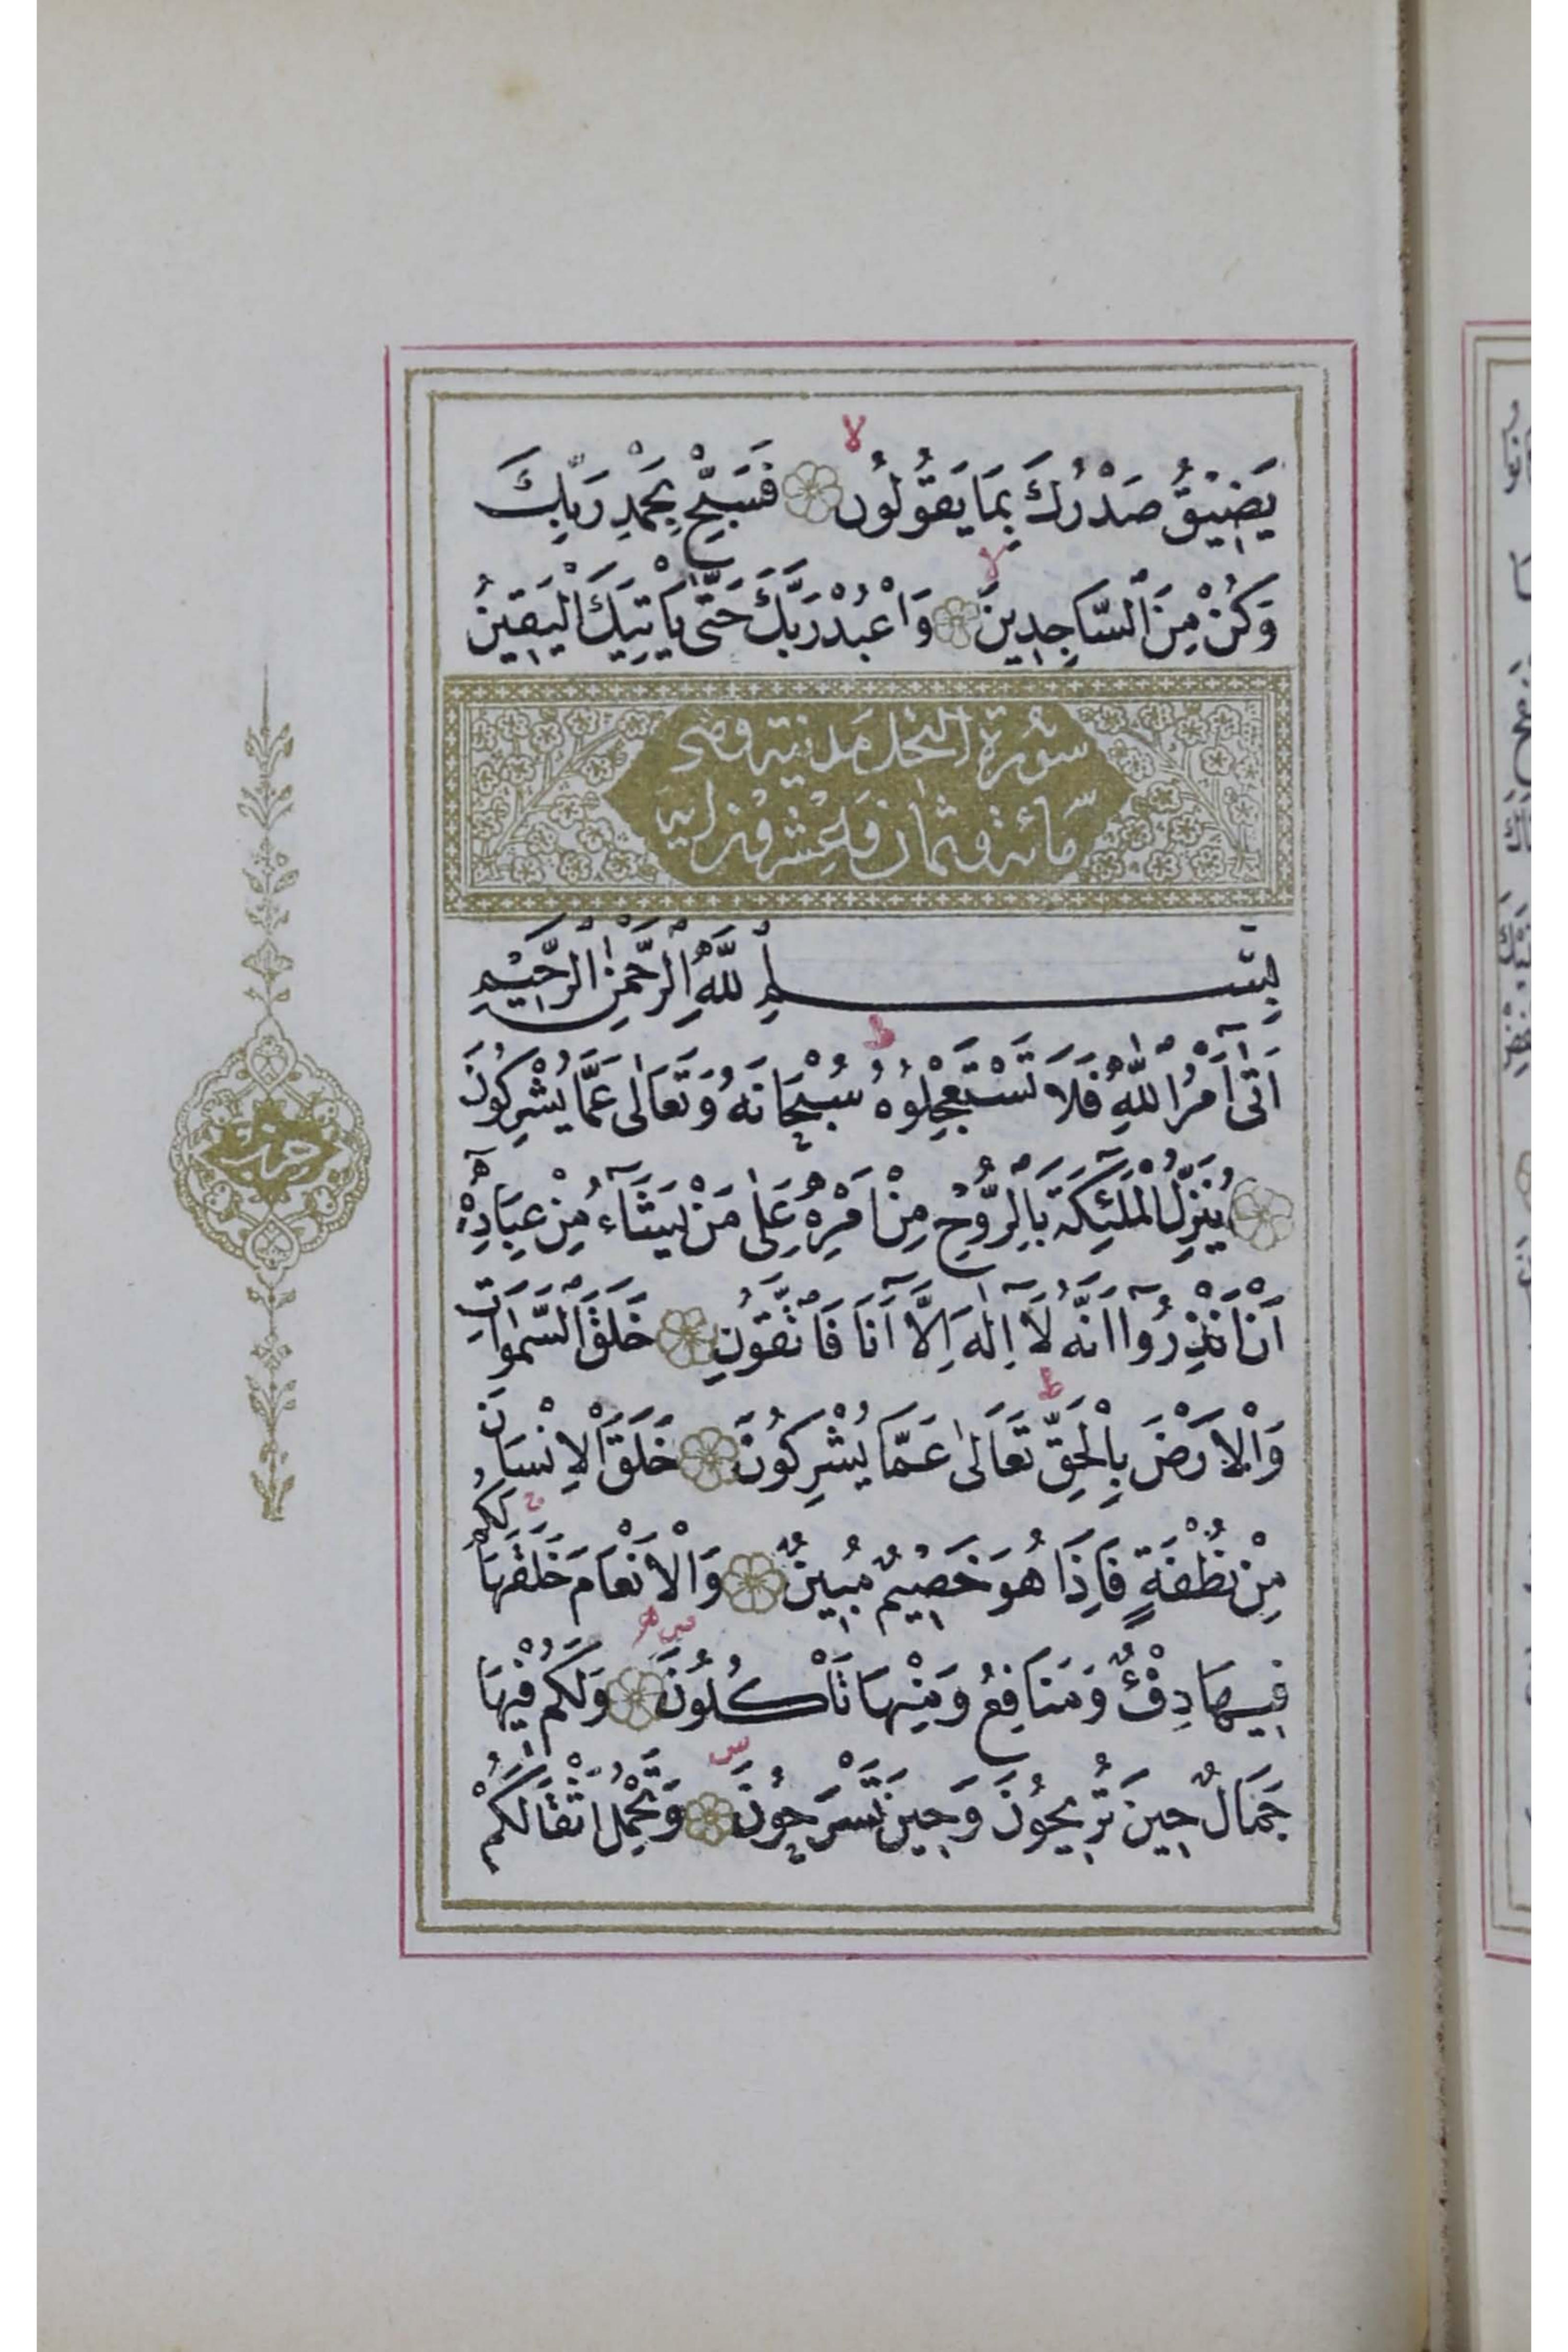 يَضِيْقُ صَدْرُكَ بِمَا يَقُولُونَ فَسَبِّحْ بِحَمْدِ رَبِّكَ
لا
وَكُنْ مِنَ السَّاجِدِينَ وَاعْبُدْ رَبَّكَ حَتّٰى يَأْتِيَكَ الْيَقِينُ
لا
سورة النحل مدنية وهى
مائة وثمان وعشرون اية
بِسْمِ اللّٰهِ الرَّحْمٰنِ الرَّحِيْمِ
اَتٰٓى اَمْرُ اللّٰهِ فَلَا تَسْتَعْجِلُوهُ سُبْحَانَهُ وَتَعَالٰى عَمَّا يُشْرِكُونَ
ط
يُنَزِّلُ الْمَلٰٓئِكَةَ بِالرُّوْحِ مِنْ اَمْرِهٖ عَلٰى مَنْ يَشَٓاءُ مِنْ عِبَادِهٖٓ
اَنْ اَنْذِرُٓوا اَنَّهُ لَٓا اِلٰهَ اِلَّٓا اَنَا فَاتَّقُونِ خَلَقَ السَّمٰوَاتِ
وَالْاَرْضَ بِالْحَقِّ تَعَالٰى عَمَّا يُشْرِكُونَ خَلَقَ الْاِنْسَانَ
ط
مِنْ نُطْفَةٍ فَاِذَا هُوَ خَصِيْمٌ مُبِينٌ وَالْاَنْعَامَ خَلَقَهَا لَكُمْ
ج
فِيهَا دِفْءٌ وَمَنَافِعُ وَمِنْهَا تَأْكُلُونَ وَلَكُمْ فِيْهَا
جَمَالٌ حِينَ تُرِيحُونَ وَحِينَ تَسْرَحُونَ وَتَحْمِلُ اَثْقَالَكُمْ